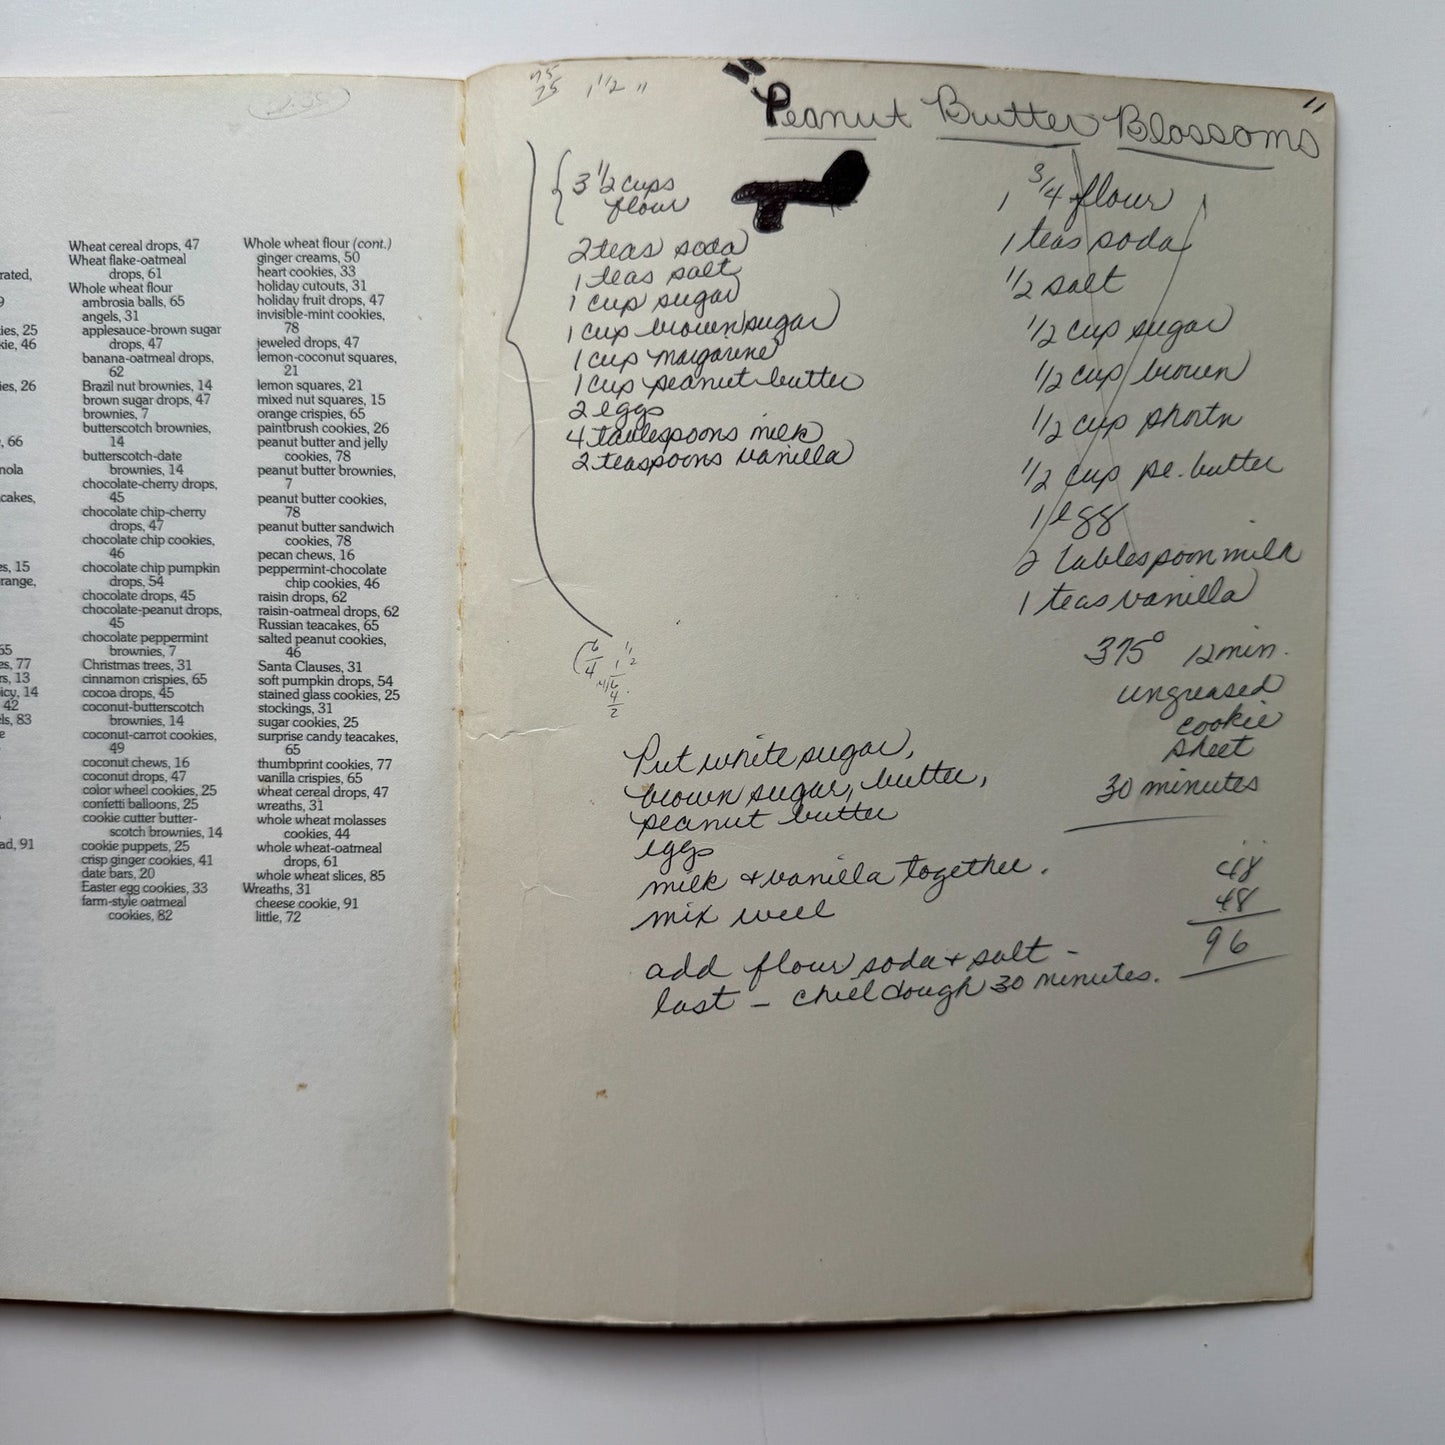 rated,
9
ies, 25
kie, 46
ies, 26
, 66
nola
cakes,
es, 15
range,
65
es, 77
rs, 13
icy, 14
42
els, 83
e
ad, 91
Wheat cereal drops, 47
Wheat flake-oatmeal
drops, 61
Whole wheat flour
ambrosia balls, 65
angels, 31
applesauce-brown sugar
drops, 47
banana-oatmeal drops,
62
Brazil nut brownies, 14
brown sugar drops, 47
brownies, 7
butterscotch brownies,
14
butterscotch-date
brownies, 14
chocolate-cherry drops,
45
chocolate chip-cherry
drops, 47
chocolate chip cookies,
46
chocolate chip pumpkin
drops, 54
chocolate drops, 45
chocolate-peanut drops,
45
chocolate peppermint
brownies, 7
Christmas trees, 31
cinnamon crispies, 65
cocoa drops, 45
coconut-butterscotch
brownies, 14
coconut-carrot cookies,
49
coconut chews, 16
coconut drops, 47
color wheel cookies, 25
confetti balloons, 25
cookie cutter butter-
scotch brownies, 14
cookie puppets, 25
crisp ginger cookies, 41
date bars, 20
Easter egg cookies, 33
farm-style oatmeal
cookies, 82
Whole wheat flour (cont.)
ginger creams, 50
heart cookies, 33
holiday cutouts, 31
holiday fruit drops, 47
invisible-mint cookies,
78
jeweled drops, 47
lemon-coconut squares,
21
lemon squares, 21
mixed nut squares, 15
orange crispies, 65
paintbrush cookies, 26
peanut butter and jelly
cookies, 78
peanut butter brownies,
7
peanut butter cookies,
78
peanut butter sandwich
cookies, 78
pecan chews, 16
peppermint-chocolate
chip cookies, 46
raisin drops, 62
raisin-oatmeal drops, 62
Russian teacakes, 65
salted peanut cookies,
46
Santa Clauses, 31
soft pumpkin drops, 54
stained glass cookies, 25
stockings, 31
sugar cookies, 25
surprise candy teacakes,
65
thumbprint cookies, 77
vanilla crispies, 65
wheat cereal drops, 47
wreaths, 31
whole wheat molasses
cookies, 44
whole wheat-oatmeal
drops, 61
whole wheat slices, 85
Wreaths, 31
cheese cookie, 91
little, 72
75
75
1 1/2 "
"Peanut Butter Blossoms"
3 1/2 cups
flour
2 teas soda
1 teas salt
1 cup sugar
1 cup brown sugar
1 cup margarine
1 cup peanut butter
2 eggs
4 tablespoons milk
2 teaspoons vanilla
1 3/4 flour
1 teas soda
1/2 salt
1/2 cup sugar
1/2 cup brown
1/2 cup shortn
1/2 cup pe. butter
1 egg
2 tablespoon milk
1 teas vanilla
375° 12 min.
ungreased
cookie
sheet
30 minutes
48
48
96
Put white sugar,
brown sugar, butter,
peanut butter
eggs
milk + vanilla together.
mix well
add flour soda + salt -
last - chill dough 30 minutes.